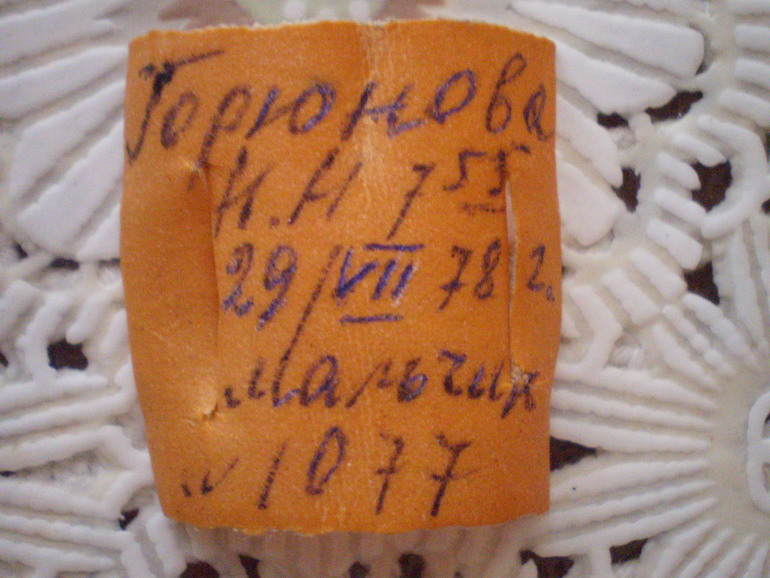 Горюнова
Н.Н 7 55
29/VII 78 г.
мальчик
№ 1077